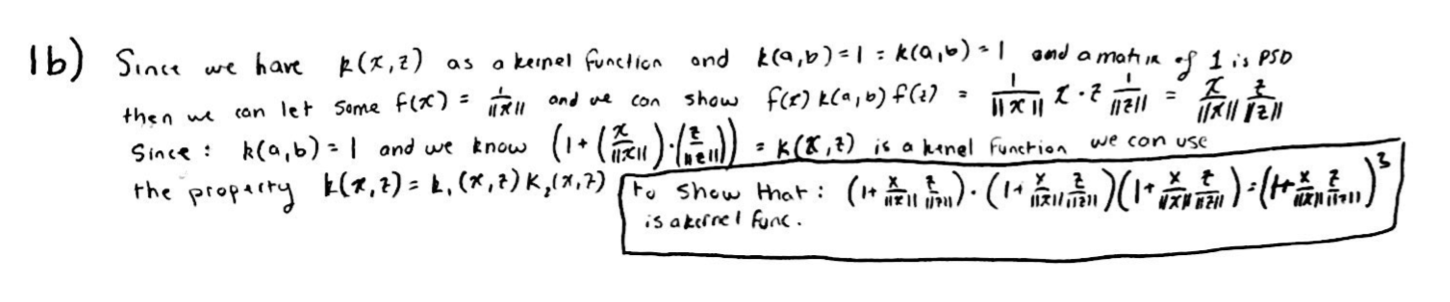 1b) Since we have k(x,z) as a kernel function and k(a,b)=1 = k(a,b)=1 and a matrix of 1 is PSD
then we can let some f(x) = 1/||x|| and we can show f(x) k(a,b) f(z) = 1/||x|| x·z 1/||z|| = x/||x|| z/||z||
Since : k(a,b)=1 and we know (1+(x/||x||)·(z/||z||)) = k(x,z) is a kernel function we can use
the property k(x,z) = k₁(x,z) K₂(x,z) to show that : (1+ x/||x|| z/||z||)·(1+ x/||x|| z/||z||)(1+ x/||x|| z/||z||) = (1+ x/||x|| z/||z||)³
is a kernel func.